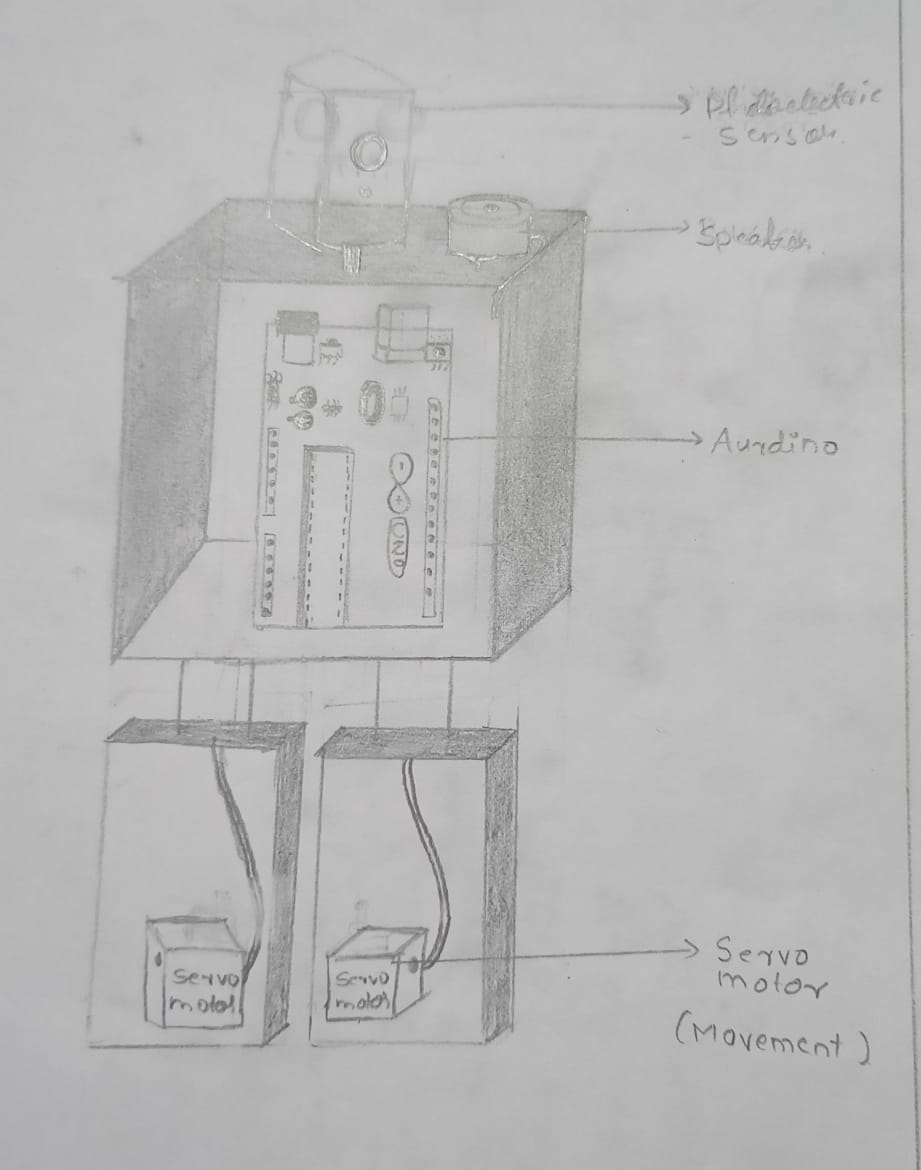 Photoelectric
- Sensor.
Speaker.
Aurdino
UNO
Servo
motor
Servo
motor
Servo
motor
(Movement)